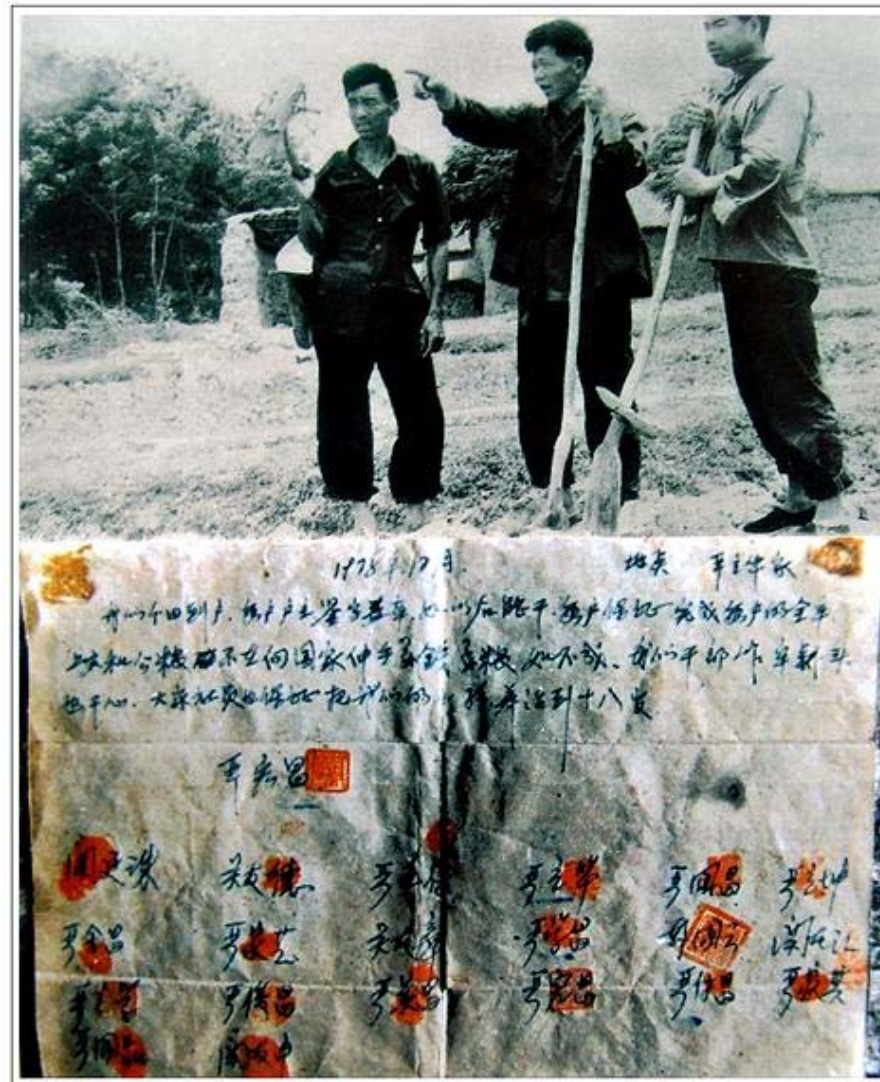 1978年12月 地点 严立华家
我们分田到户，每户户主签字盖章，如以后能干，每户保证完成每户的全年
上交和公粮 不在向国家伸手要钱要粮 如不成，我们干部作牢杀头
也干心，大家社员也保证把我们的小孩养活到十八岁
严宏昌
关廷珠 关友德 严立符 严立华 严国昌 严立坤
严金昌 严家芝 关友章 严学昌 韩国云 关友江
严立学 严俊昌 严美昌 严宏昌 严付昌 严家其
严国品 关友申